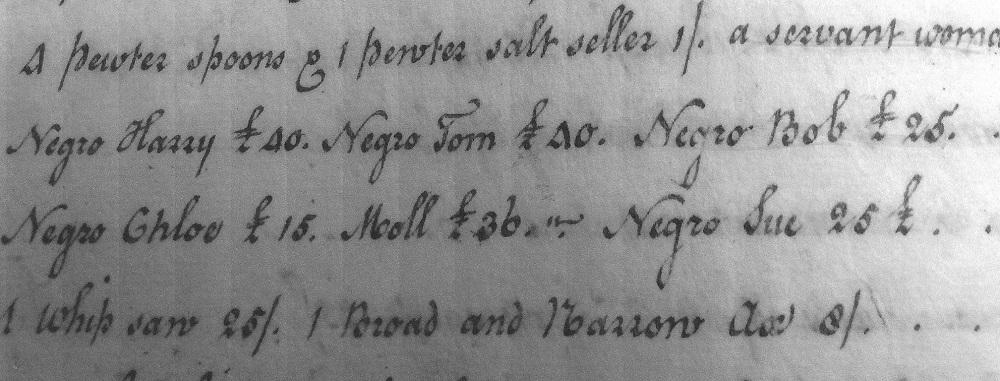 4 pewter spoons & 1 pewter salt seller 1/. a servant woma
Negro Harry £40. Negro Tom £40. Negro Bob £25. .
Negro Chloe £15. Moll £36. Negro Sue 25 £. .
1 Whip saw 25/. 1 Broad and Narrow Ax 8/. . .